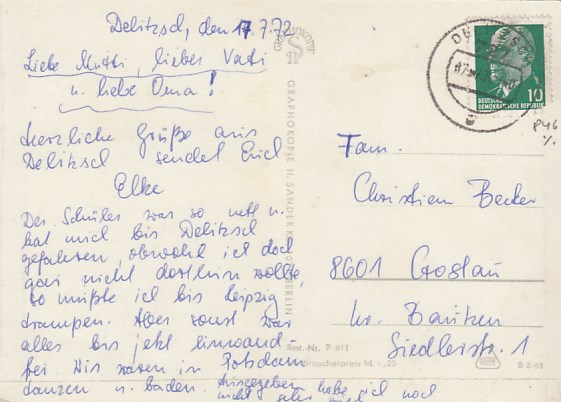 Delitzsch, den 17.7.72
Liebe Mutti, lieber Vati
u. liebe Oma!
Herzliche Grüße aus
Delitzsch sendet Euch
Elke
Der Schüler war so nett u.
hat mich bis Delitzsch
gefahren, obwohl ich doch
gar nicht dorthin wollte,
so mußte ich bis Leipzig
trampen. Aber sonst war
alles bis jetzt einwand-
frei Wir waren in Potsdam
tanzen u. baden. ausgegeben habe ich noch
nicht sehr viel
GRAPHOKOPIE
GRAPHOKOPIE H. SANDER KG BERLIN
DEUTSCHE
DEMOKRATISCHE REPUBLIK
10
P46
Fam.
Christian Becker
8601 Gostau
Kr. Bautzen
Siedlerstr. 1
Best.-Nr. P 611
Verbraucherpreis M -,25